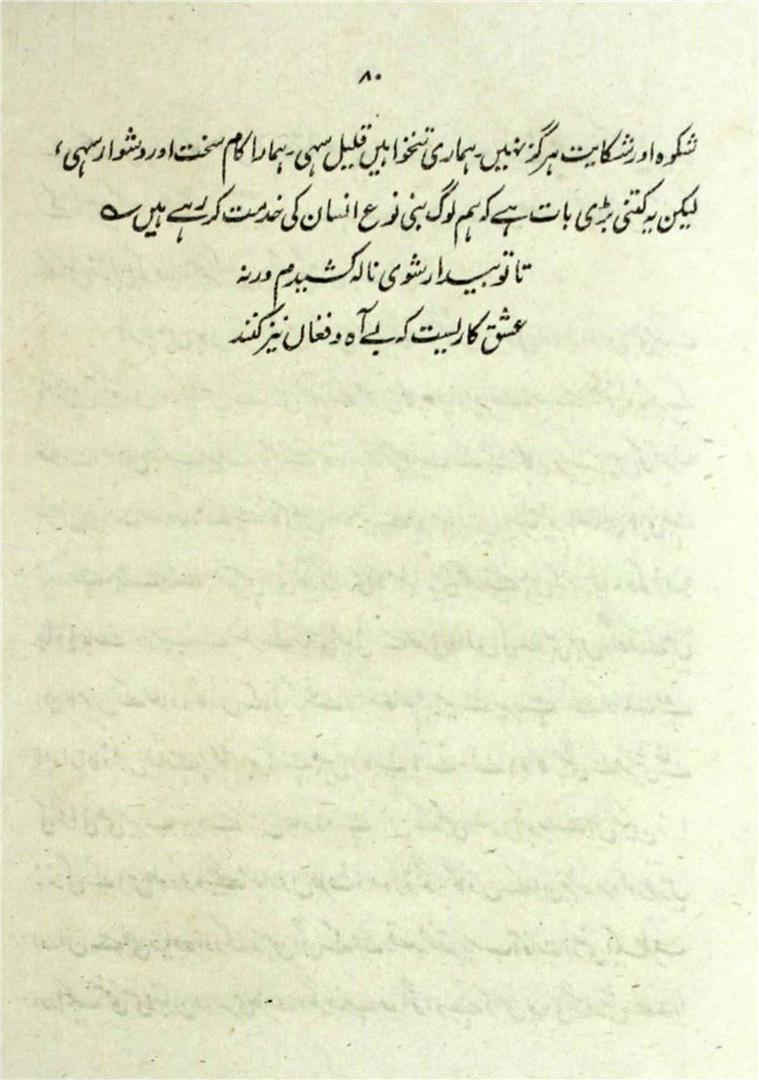 ۸۰
شکوہ اور شکایت ہرگز نہیں۔ ہماری تنخواہیں قلیل سہی۔ ہمارا کام سخت اور دشوار سہی،
لیکن یہ کتنی بڑی بات ہے کہ ہم لوگ بنی نوع انسان کی خدمت کر رہے ہیں ؎
تا تو بیدار شوی نالہ کشیدم ورنہ
عشق کاریست کہ بے آہ و فغاں نیز کنند